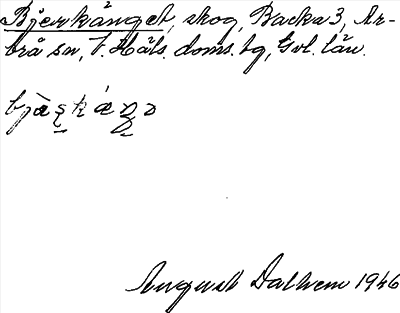 Bjerkänget, skog, Backa 3, Ar-
brå sn, V. Häls. doms. tg, Gvl. län.
August Dalhem 1946